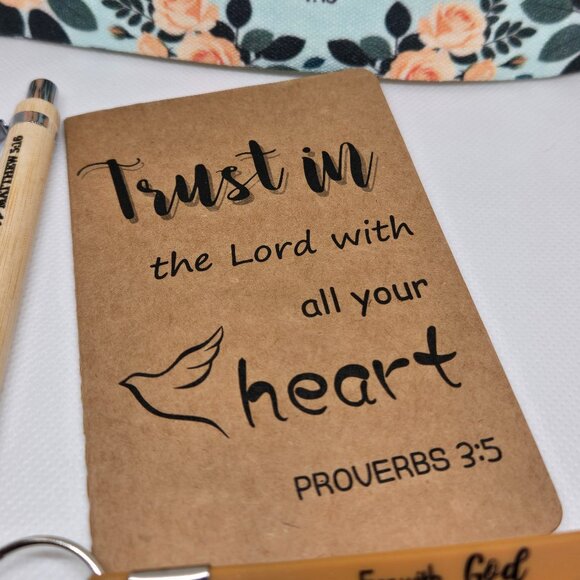 Trust in
the Lord with
all your
heart
PROVERBS 3:5
God